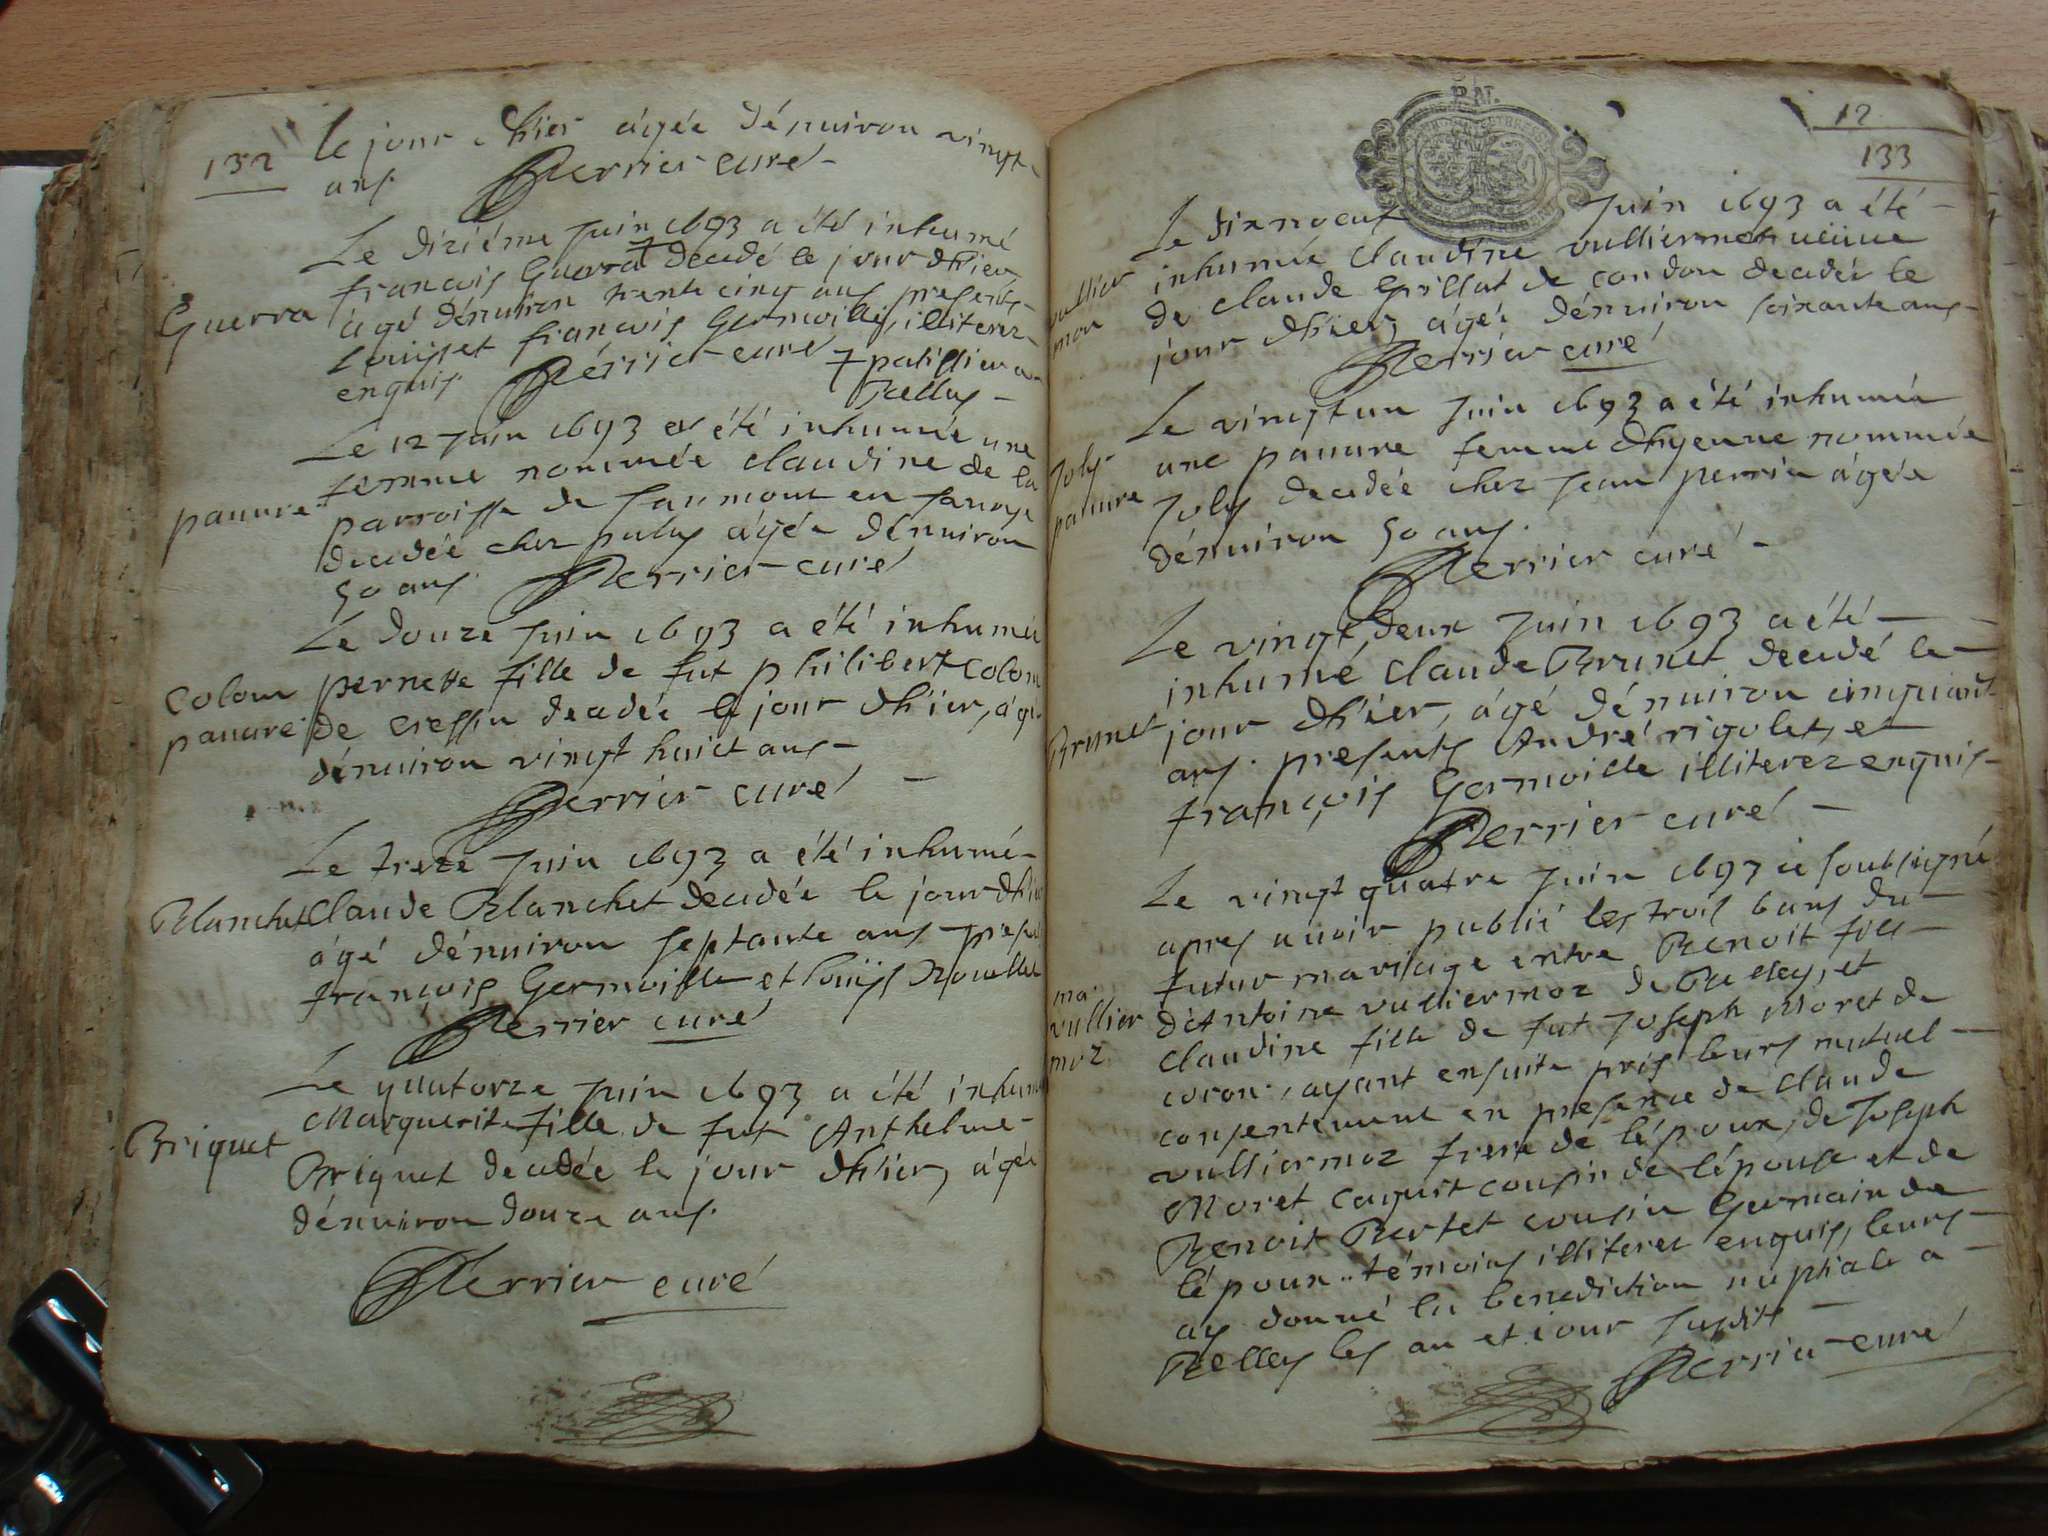 132
le jour d'hier âgée dénuiron vingt
ans. Perrier curé
Le diziéme Juin 1693 a été inhumé
francois Guerra + decedé le jour d'hier,
Guerra
agé dénuiron trente cinq ans presents
Louis et francois Germoille, illiterez
enquis. Perrier curé + patissier a
Belley
Le 12 Juin 1693 a été inhumée une
femme nommée claudine de la
pauure
parroisse de en sauoye
decedée chez agée dénuiron
50 ans Perrier curé
Le douze Juin 1693 a été inhumée
Colom pernette fille de fut philibert Colom
pauure de cressin decedée le jour d'hier, agé
dénuiron vingt huict ans
Perrier curé
Le treze Juin 1693 a été inhumé
Blanchet Claude Blanchet decedée le jour d'hier
âgé dénuiron septante ans presents
francois Germoille et louis
Perrier curé
Le quatorze Juin 1693 a été inhum
Marguerite fille de fut Anthelme
Briquet
Briquet decedée le jour d'hier, agée
dénuiron douze ans.
Perrier curé
12
133
Le dixnoeuf Juin 1693 a été
inhumée claudine vulliermet ueuue
vullier
mou
de claude Grillat de condon decedée le
jour d'hier, agée dénuiron soixante ans
Perrier curé
Le vingt un Juin 1693 a été inhumée
une pauure femme d'hyenne nommée
Joly
pauure
Joly decedée chez Jean perrin âgée
dénuiron 50 ans.
Perrier curé
Le vingt deux Juin 1693 a été
inhumé claude Brunet decedé le
Brunet
jour d'hier, âgé dénuiron cinquant
ans. presents André rigolet, et
francois Germoille illiterez enquis
Perrier curé
Le vingt quatre Juin 1693 ie soubsigné
apres auoir publié les trois bans du
futur mariage entre Benoit fils
ma.
vullier
moz
d'Antoine vulliermoz de Belley, et
claudine fille de fut Joseph Moret de
coron, ayant ensuite pris leurs mutuel
consentement en presence de claude
vulliermoz frere de lépoux, de Joseph
Moret cousin de lépouse et de
Benoit Bertet cousin Germain de
lépoux témoins illiterez enquis, leurs
ay donné la benediction nuptiale a
Belley les an et iour susdits
Perrier curé